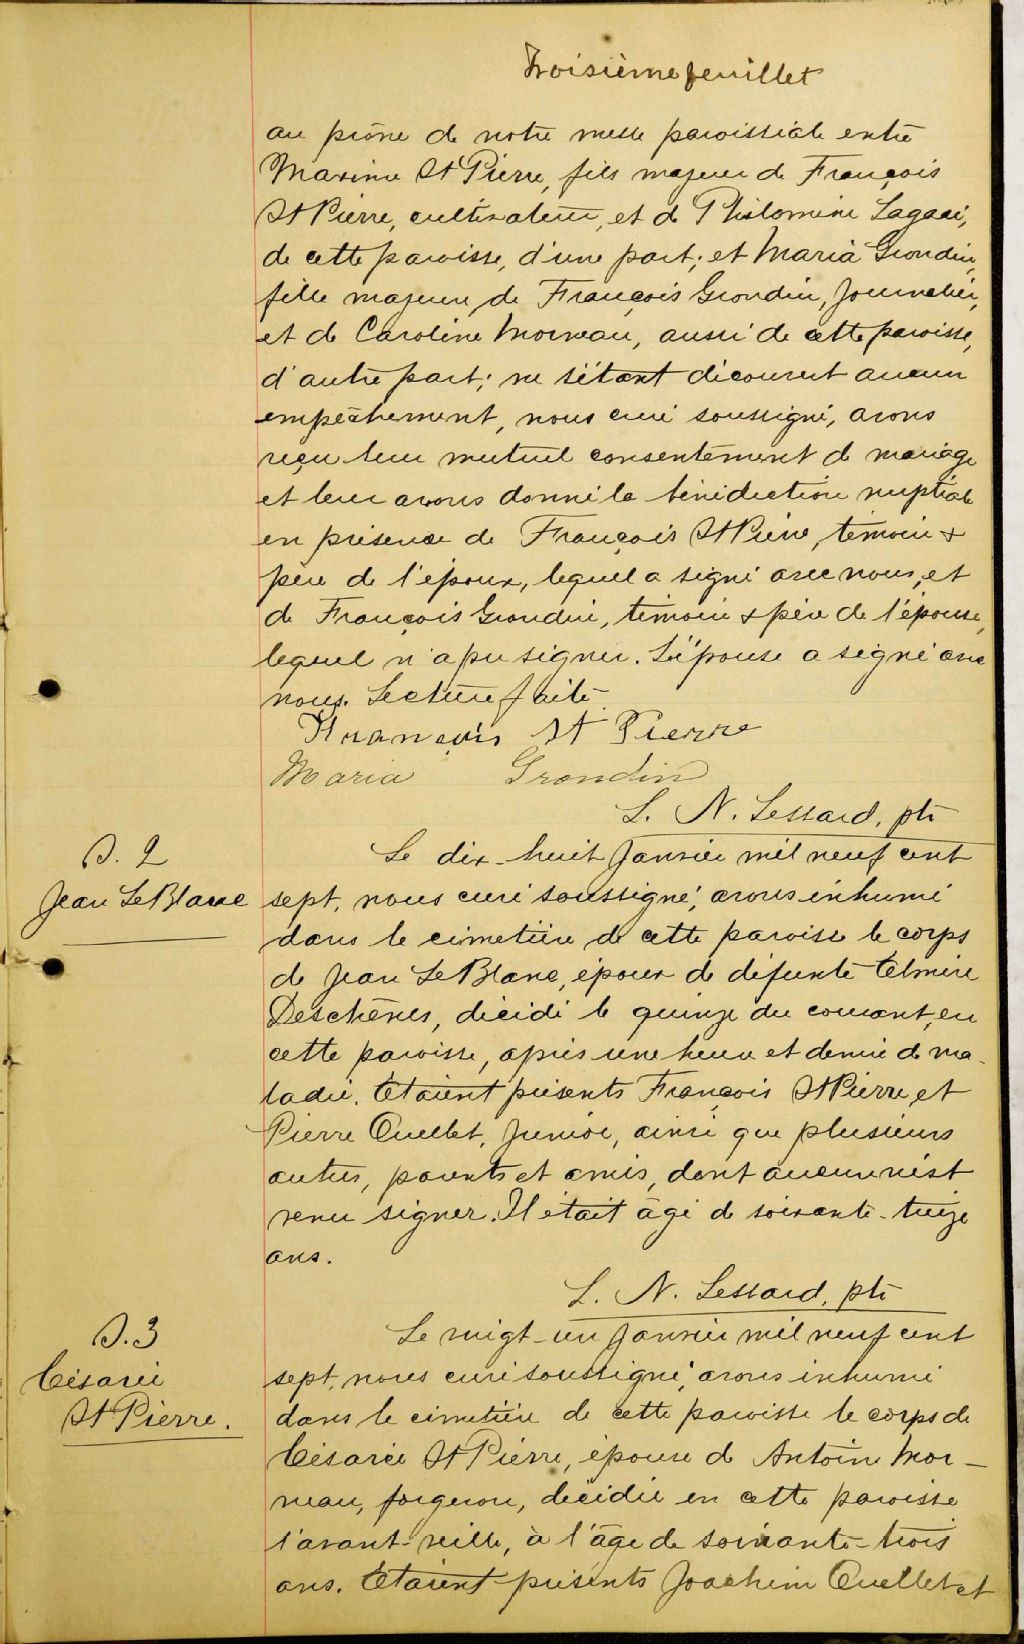 Troisième feuillet
au prône de notre messe paroissiale entre
Maxime St Pierre, fils majeur de François
St Pierre, cultivateur, et de Philomène Lagacé,
de cette paroisse, d'une part; et Maria Grondin,
fille majeure de François Grondin, journalier,
et de Caroline Morneau, aussi de cette paroisse,
d'autre part; ne s'étant découvert aucun
empêchement, nous curé soussigné, avons
reçu leur mutuel consentement de mariage
et leur avons donné la bénédiction nuptiale
en présence de François St Pierre, témoin &
père de l'époux, lequel a signé avec nous, et
de François Grondin, témoin & père de l'épouse,
lequel n'a pu signer. L'épouse a signé avec
nous. Lecture faite.
François St Pierre
Maria Grondin
L. N. Lessard, ptr
S. 2
Jean LeBlanc
Le dix-huit Janvier mil neuf cent
sept, nous curé soussigné, avons inhumé
dans le cimetière de cette paroisse le corps
de Jean LeBlanc, époux de défunte Elmire
Deschênes, décédé le quinze du courant, en
cette paroisse, après une heure et demie de ma-
ladie. Etaient présents François St Pierre et
Pierre Ouellet, Junior, ainsi que plusieurs
autres, parents et amis, dont aucun n'est
venu signer. Il était âgé de soixante-treize
ans.
L. N. Lessard, ptr
S. 3
Césarée
St Pierre.
Le vingt-un Janvier mil neuf cent
sept, nous curé soussigné, avons inhumé
dans le cimetière de cette paroisse le corps de
Césarée St Pierre, épouse de Antoine Mor-
neau, forgeron, décédée en cette paroisse
l'avant-veille, à l'âge de soixante-trois
ans. Etaient présents Joachim Ouellet et